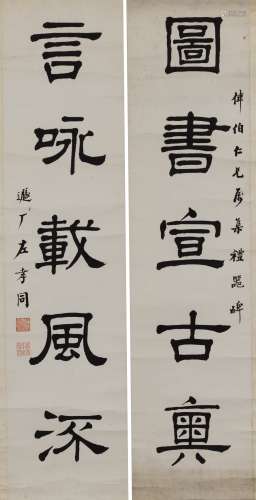 圖書宣古奧
倬伯仁兄屬集禮器碑
言咏載風流
遯厂左孝同